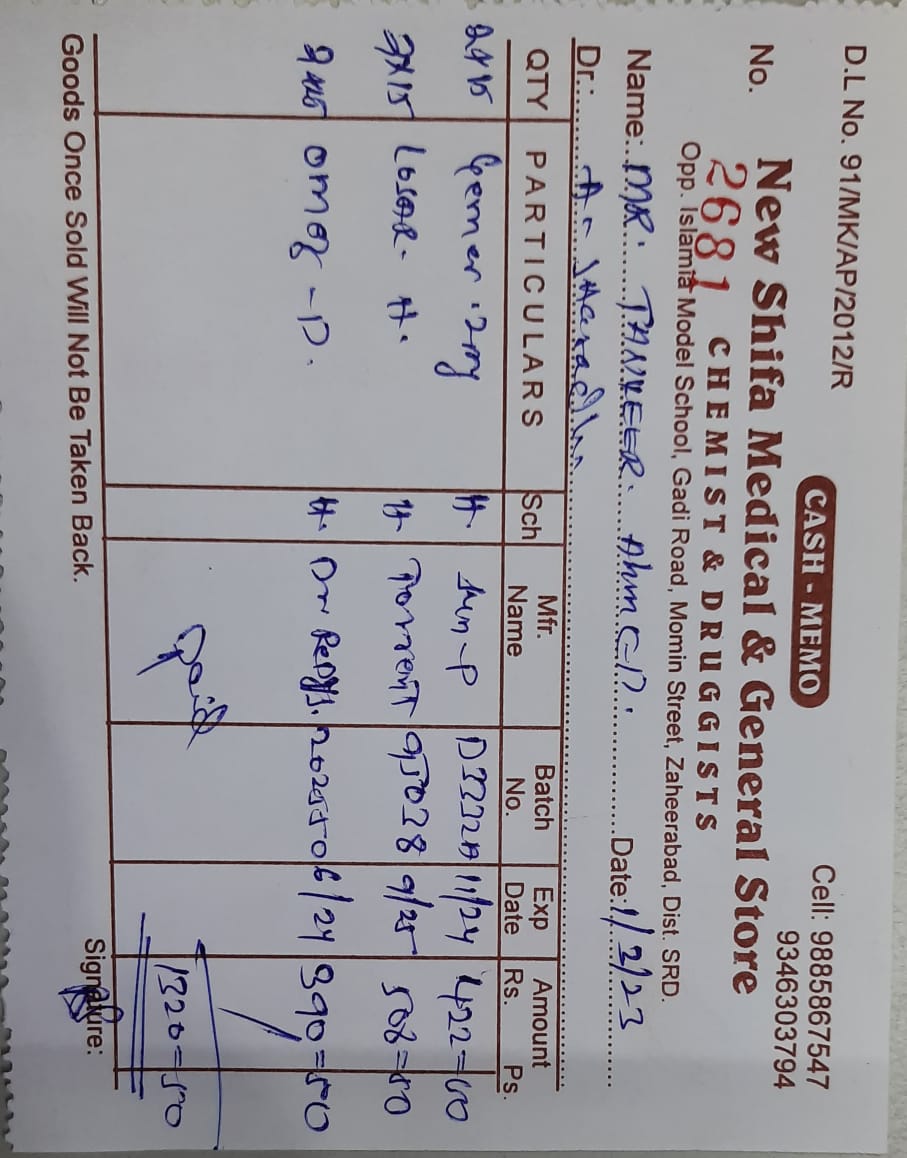 D.L No. 91/MK/AP/2012/R
CASH - MEMO
Cell: 9885867547
9346303794
No. 2681
New Shifa Medical & General Store
CHEMIST & DRUGGISTS
Opp. Islamia Model School, Gadi Road, Momin Street, Zaheerabad, Dist. SRD.
Name: MR. TANVEER. Ahmed. Date: 1/2/23
Dr.:
QTY PARTICULARS Sch Mfr. Name Batch No. Exp Date Amount Rs. Ps.
2x15 Gemer .2mg H. Sun-P D3332A 11/24 422=00
LOSAR- H. H Torrent 95038 9/25 508=50
OMEZ -D. H. Dr Reddys. 2025550 6/24 390=50
Paid
1320=50
Goods Once Sold Will Not Be Taken Back.
Signature: